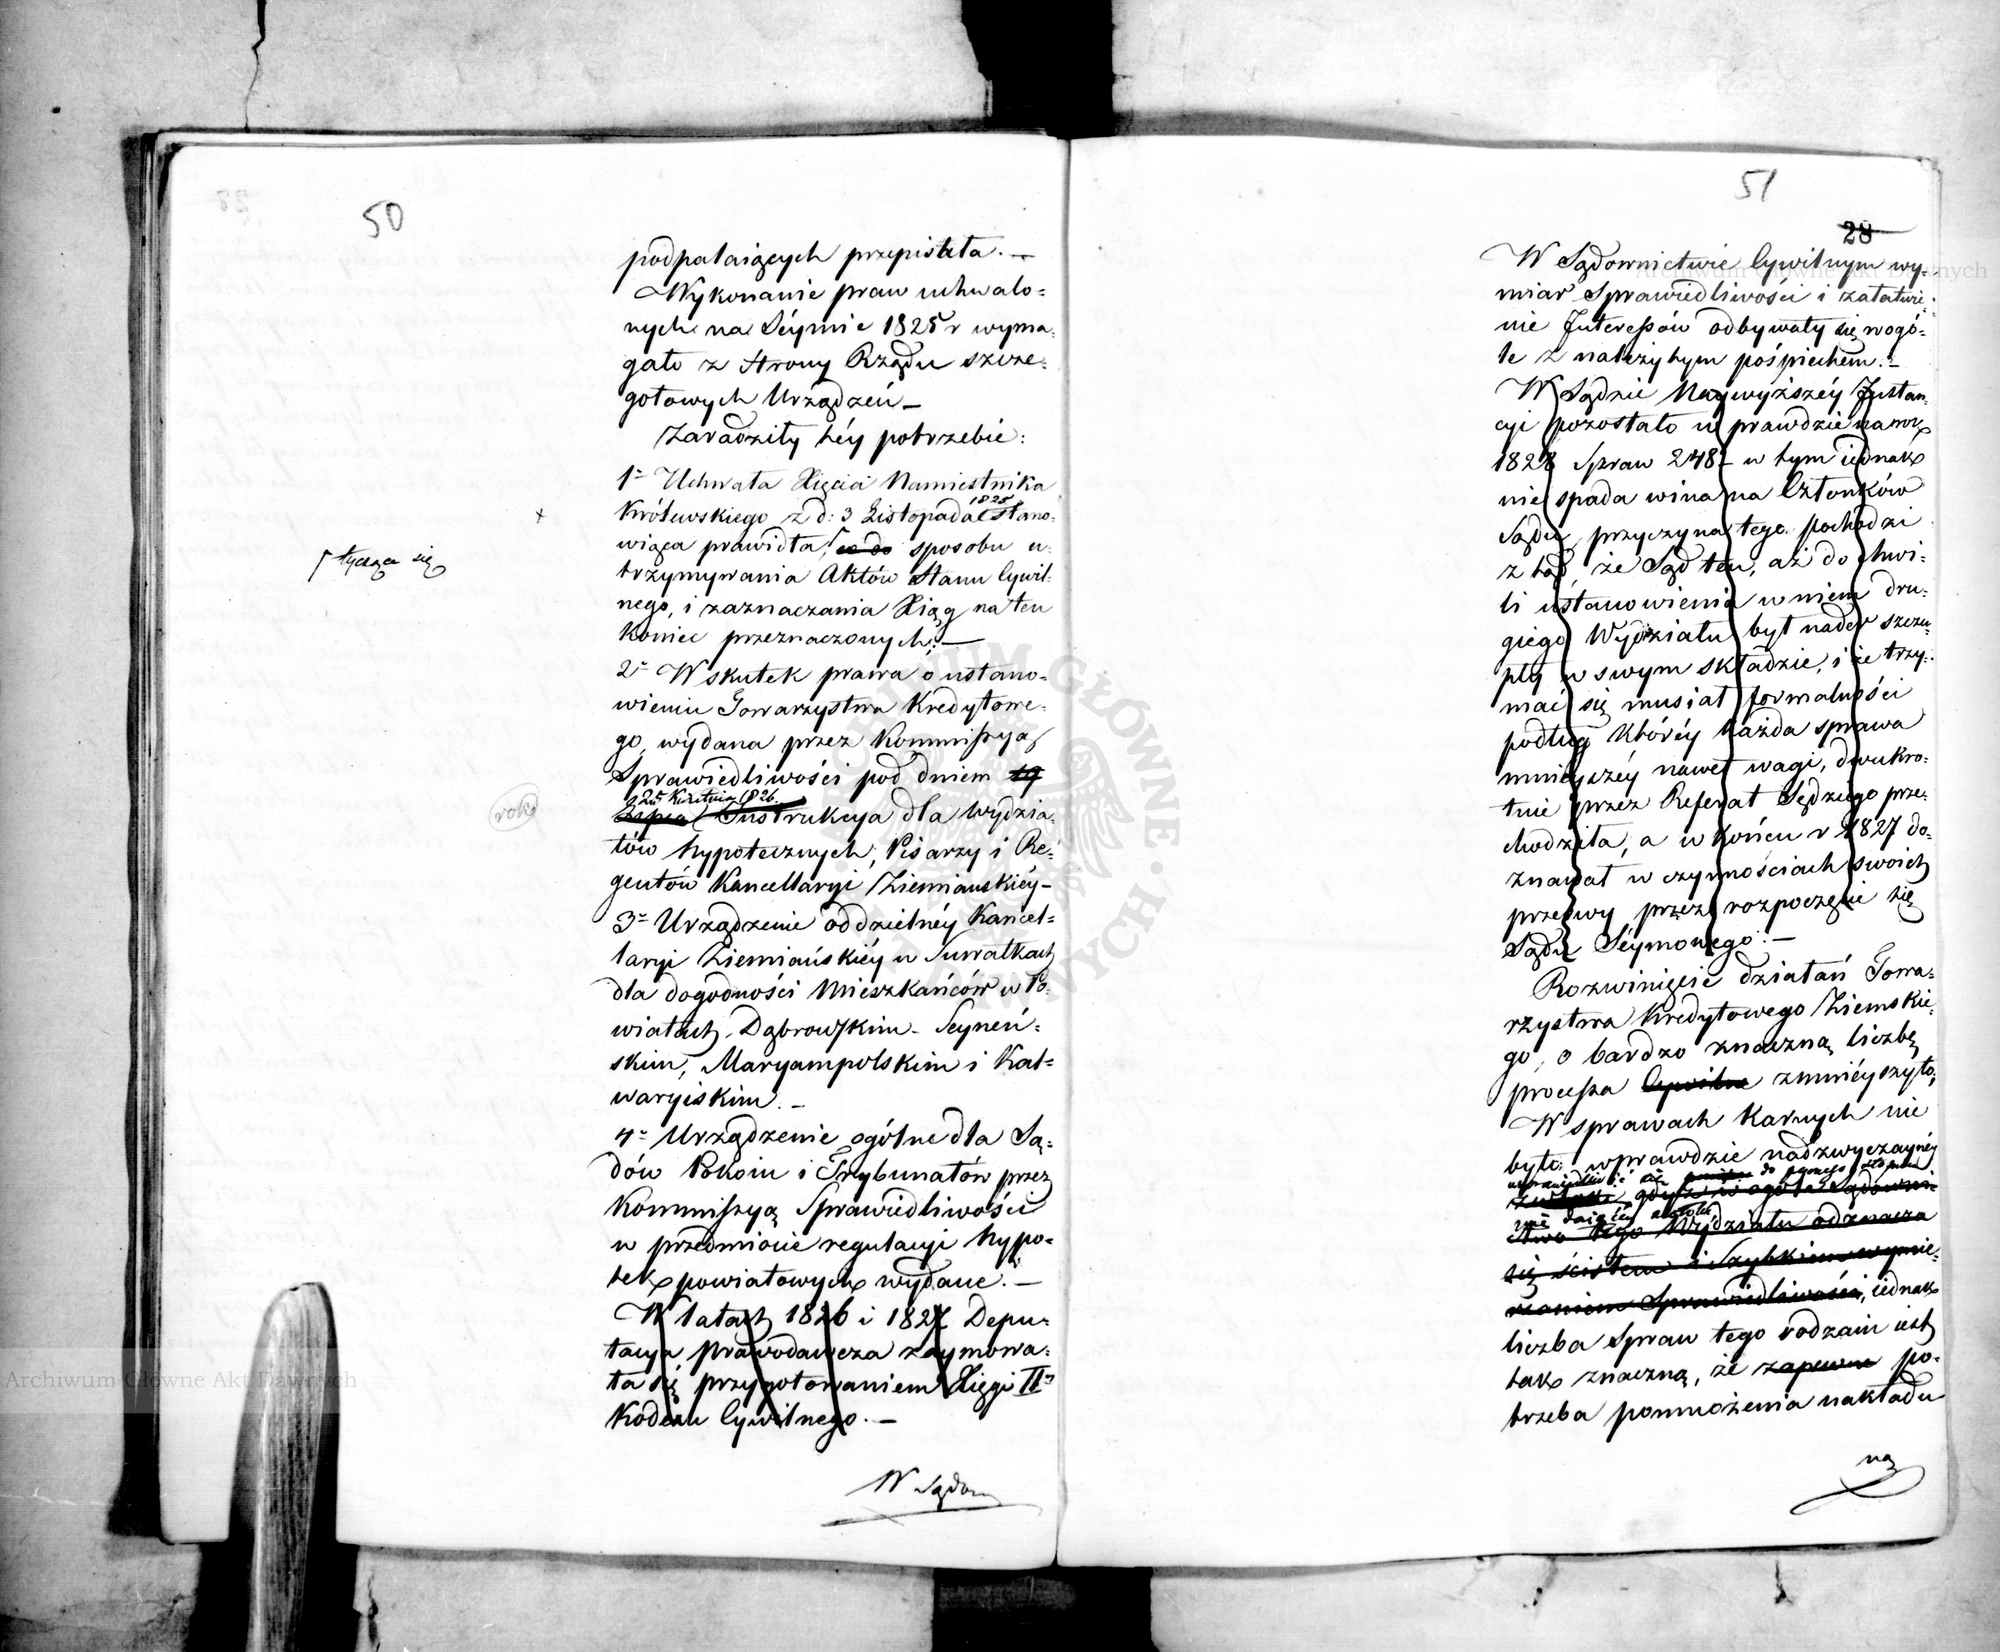 50
podpalaiących przepisała. —
Wykonanie praw uchwalo=
nych na Séymie 1825 r wyma=
gało z strony Rządu szcze=
gółowych Urządzeń —
Zaradziły téy potrzebie:
1° Uchwała Xięcia Namiestnika
1825
Królewskiego z d: 3 Listopada r stano=
x
wiąca prawidła, co do sposobu u=
tycząca się
trzymywania Aktów Stanu Cywil=
nego, i zaznaczania Xiąg na ten
koniec przeznaczonych; —
2° W skutek prawa o ustano=
wieniu Towarzystwa Kredytowe=
go, wydana przez Kommissyą
Sprawiedliwości pod dniem 19
25 Kwietnia 1826.
Lipca Instrukcya dla Wydzia=
roku
łów hypotecznych, Pisarzy i Re=
gentów Kancellaryi Ziemiańskiéy —
3° Urządzenie oddzielnéy Kancel=
laryi Ziemiańskiéy w Suwałkach
dla dogodności Mieszkańców w Po=
wiatach Dąbrowskim — Seyneń=
skim, Maryampolskim i Kal=
waryiskim. —
4° Urządzenie ogólne dla Są=
dów Pokoiu i Trybunałów przez
Kommissyą Sprawiedliwości
w przedmiocie regulacyi hypo=
tek powiatowych wydane. —
W latach 1826 i 1827 Depu=
tacya prawodawcza zaymowa=
ła się przygotowaniem Xięgi II°
Kodexu Cywilnego. —
W Sądow
51
28
W Sądownictwie Cywilnym wy=
miar Sprawiedliwości i załatwie=
nie Interessów odbywały się wogó=
le z należytym pośpiechem. —
W Sądzie Naywyższéy Instan=
cyi pozostało w prawdzie na rok
1828 Spraw 248 — w tym iednak
nie spada wina na Członków
Sądu, przyczyna tego pochodzi
z tąd, że Sąd ten, aż do chwi=
li ustanowienia w niem dru=
giego Wydziału był nader szczu=
pły w swym składzie, i że trzy=
mać się musiał formalności
podług któréy każda sprawa
mnieyszéy nawet wagi, dwukro=
tnie przez Referat Sędziego prze=
chodziła, a w końcu r 1827 do=
znawał w czynnościach swoich
przerwy przez rozpoczęcie się
Sądu Séymowego. —
Rozwinięcie działań Towa=
rzystwa Kredytowego Ziemskie=
go, o bardzo znaczną liczbę
processa Cywilne zmniéyszyło;
W sprawach Karnych nie
było wprawdzie nadzwyczaynéy
do pewnego stopnia
gdyż w ogóle Sądowni=
ctwo tego Wydziału odznacza
się ścisłem i Szybkiem wymie=
rzaniem Sprawiedliwości, iednak
liczba Spraw tego rodzaiu iest
tak znaczną, że zapewne po=
trzeba pomnożenia nakładu
na